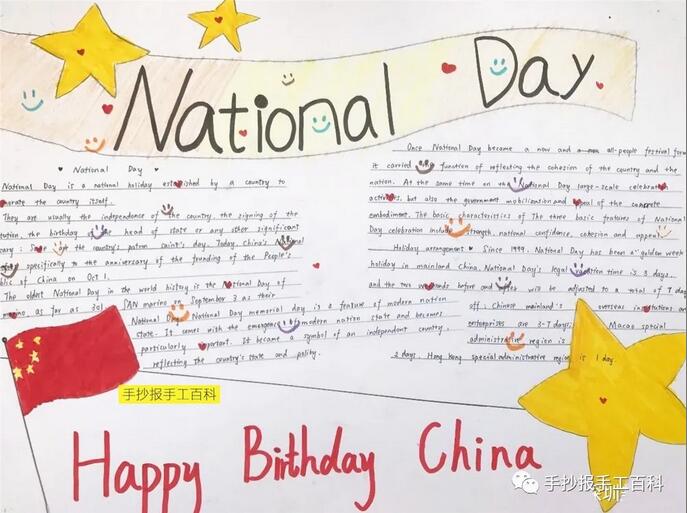 National Day
National Day
National Day is a national holiday established by a country to
the country itself.
They are usually the independence of the country, the signing of the
the birthday the head of state or any other significant
the country's patron saint's day. Today, China's National
specifically to the anniversary of the founding of the People's
of China on Oct 1.
The oldest National Day in the world history is the National Day of
as far as 301 SAN marino on September 3 as their
National Day. National Day memorial day is a feature of modern nation
state. It comes with the modern nation state and becomes
particularly important. It became a symbol of an independent country,
reflecting the country's state and polity.
Once National Day became a now and all-people festival form
it carried function of reflecting the cohesion of the country and the
nation. At the same time on the National Day large-scale celebration
but also the government mobilization and appeal of the concrete
embodiment. The basic characteristics of The three basic features of National
Day celebration strength, national confidence, cohesion and appeal
Holiday arrangement Since 1999, National Day has been a "golden week"
holiday in mainland China. National Day's legal time is 3 days,
and the two weekends before and will be adjusted to a total of 7 days
off. Chinese mainland's overseas institutions and
enterprises are 3-7 days; Macao special
administrative region is
2 days, Hong Kong special administrative region is 1 day
手抄报手工百科
Happy Birthday China
手抄报手工百科